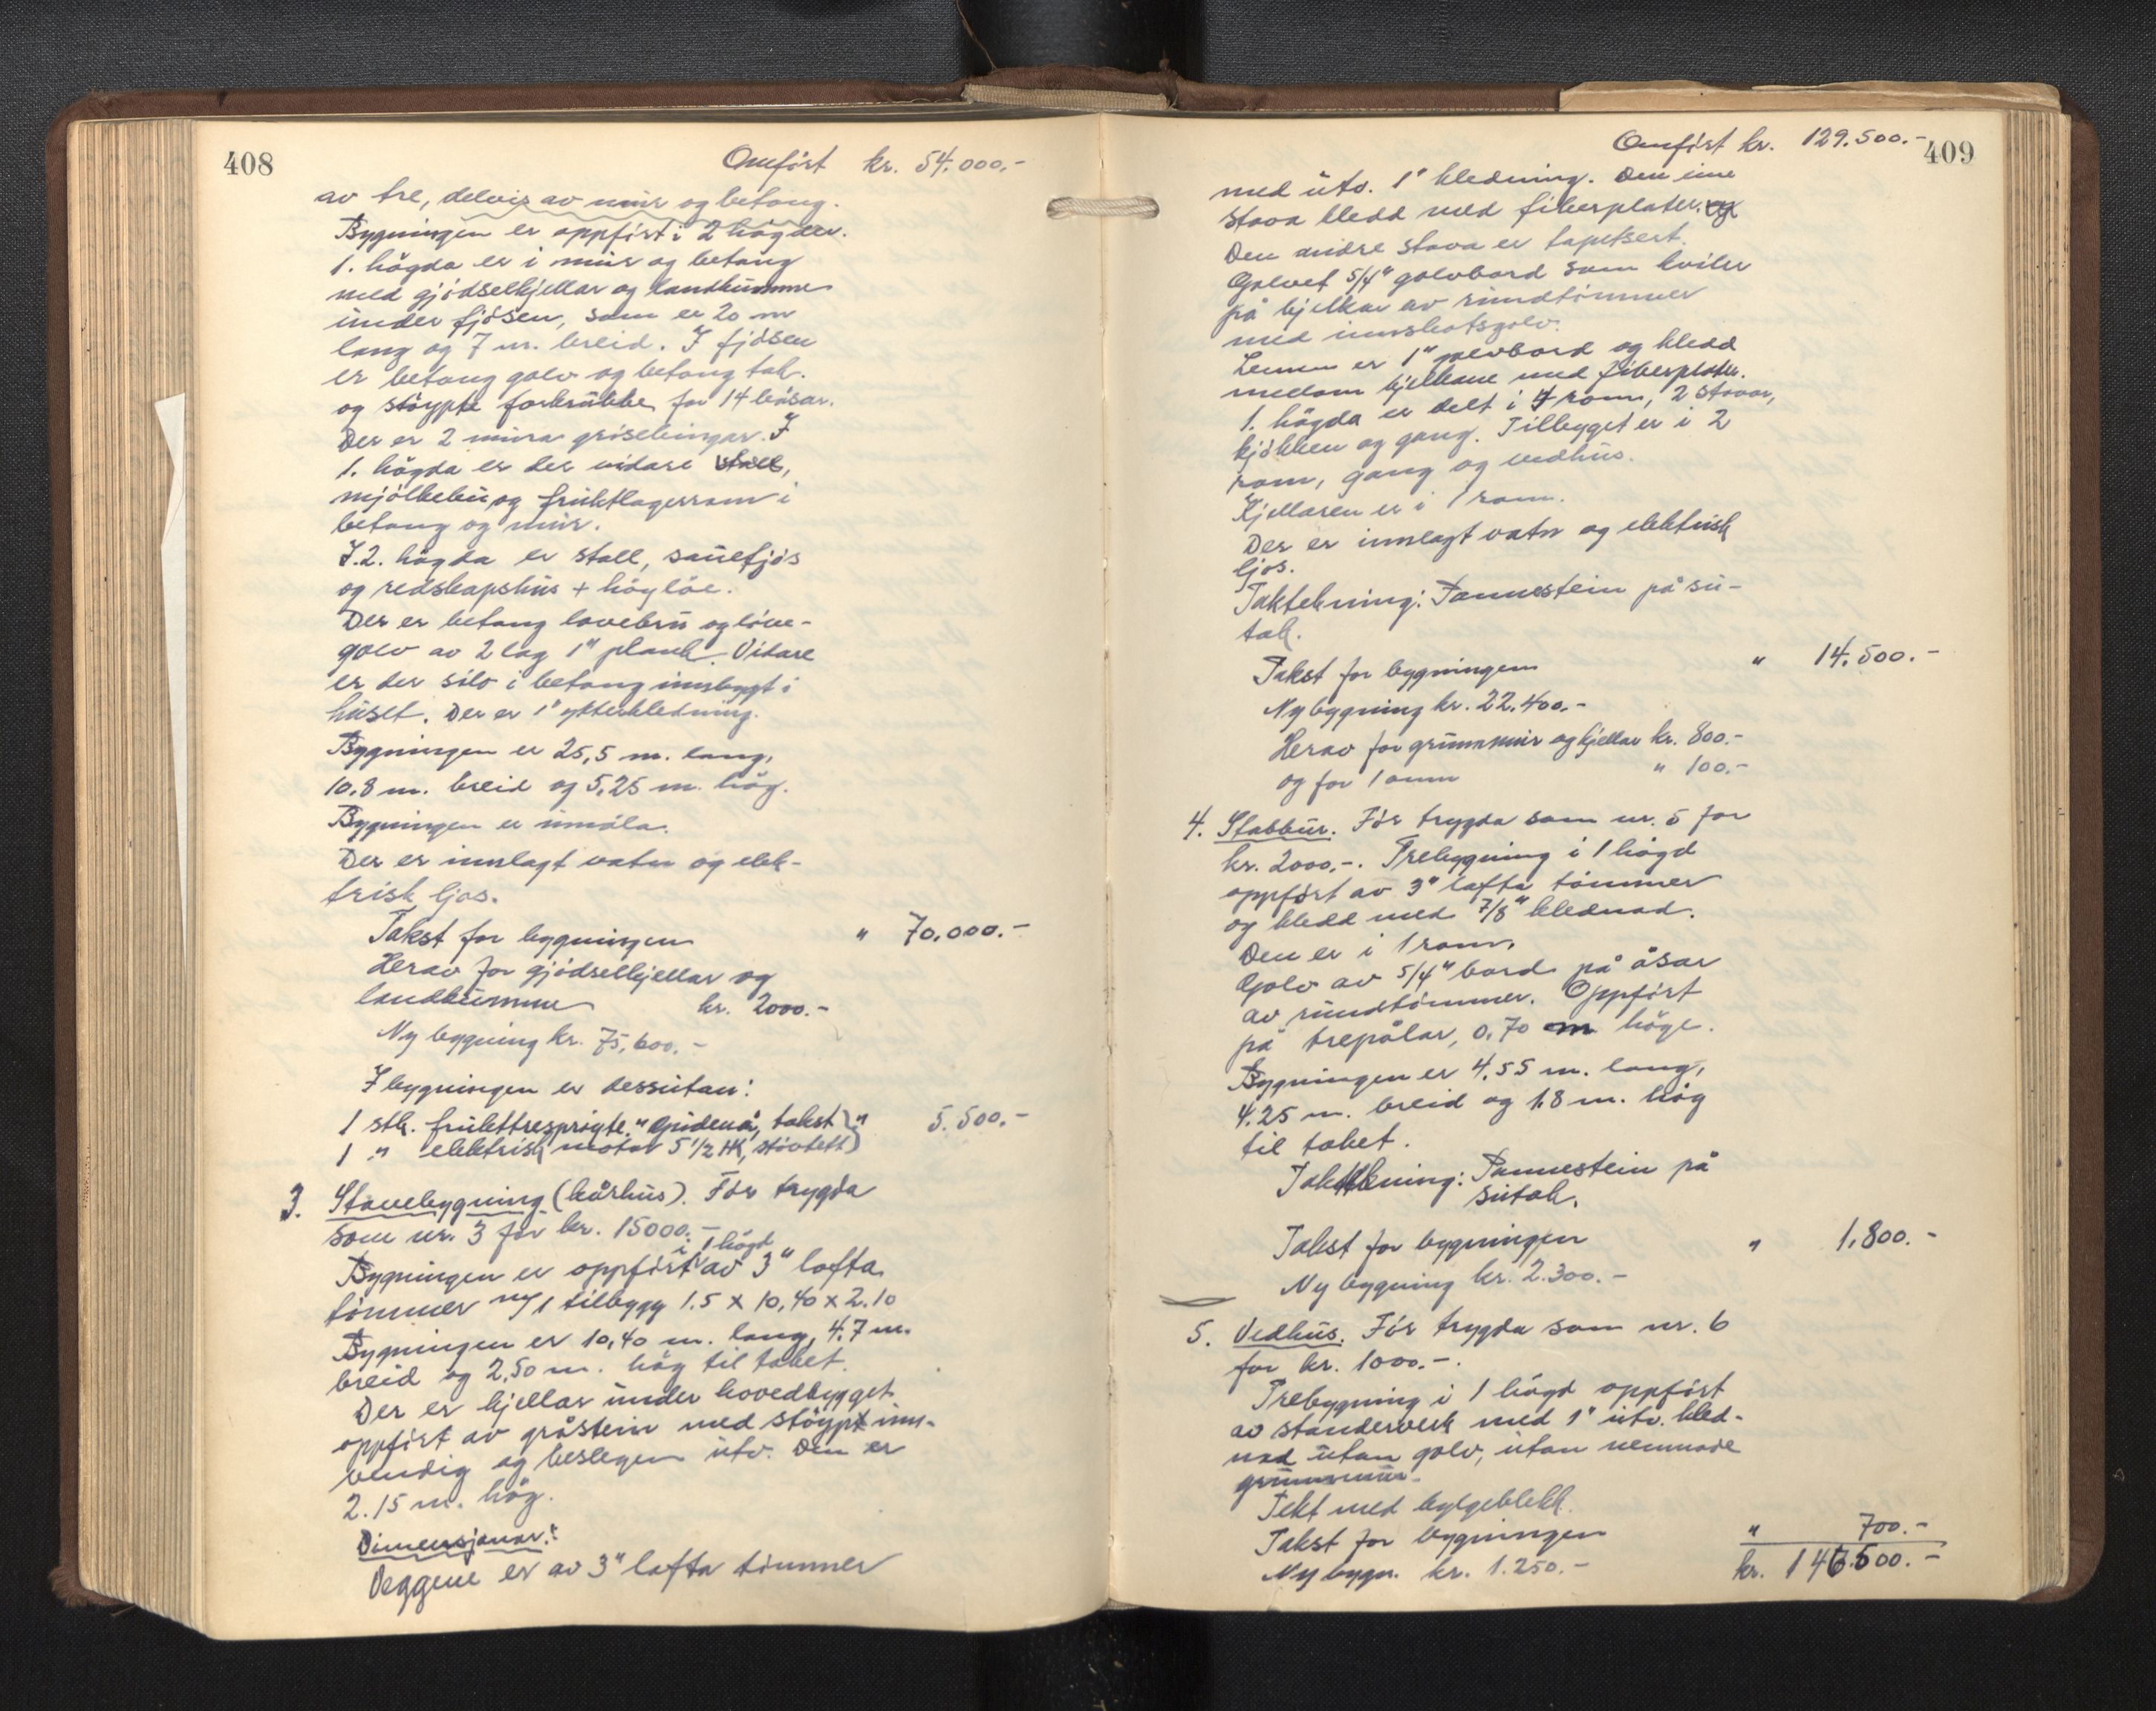 408
Omført kr. 54.000.-
av tre, delvis av mur og betong.
Bygningen er oppført i 2 högder.
1. högda er i mur og betong
med gjødselkjellar og landkumme
under fjøsen, som er 20 m
lang og 7 m. breid. I fjøsen
er betong golv og betong tak.
og støypte forkrubbe for 14 båsar.
Der er 2 mura grisebingar. I
1. högda er der vidare stall,
mjølkebu og fruktlagerrom i
betong og mur.
I. 2. högda er stall, sauefjøs
og redskapshus + høyløe.
Der er betong lovebru og löve-
golv av 2 lag 1" plank. Vidare
er der silo i betong innbygt i
huset. Der er 1" ytterkledning.
Bygningen er 25,5 m. lang,
10.8 m. breid og 5,25 m. høg.
Bygningen er umåla.
Der er innlagt vatn og elek-
trisk ljos.
Takst for bygningen " 70.000.-
Herav for gjødselkjellar og
landkumme kr. 2000.-
Ny bygning kr. 75,600.-
I bygningen er dessutan:
1 stk. frukttresprøyte, takst " 5.500.-
1 " elektrisk motor 5 1/2 HK, støvtett
3. Stovebygning (kårhus). Før trygda
som nr. 3 for kr. 15000.-
i 1 högd
Bygningen er oppført av 3" lafta
tømmer m/1 tilbygg 1.5 x 10,40 x 2.10
Bygningen er 10,40 m. lang, 4.7 m.
breid og 2,50 m. høg til taket.
Der er kjellar under hovedbygget
oppført av gråstein med støypt inn-
vendig og beslegen utv. Den er
2.15 m. høg.
Dimensjonar:
Veggene er av 3" lafta tømmer
409
Omført kr. 129.500.-
med utv. 1" kledning. Den eine
stova kledd med fiberplater. og
Den andre stova er tapetsert.
Golvet 5/4" golvbord som kviler
på bjelkar av rundtømmer
med innskotsgolv.
Lemen er 1" golvbord og kledd
medom bjelkane med fiberplater.
1. högda er delt i 4 rom, 2 stover,
kjøkken og gang. Tilbyget er i 2
rom, gang og vedhus.
Kjellaren er i 1 rom.
Der er innlagt vatn og elektrisk
ljos.
Taktekning: Pannestein på su-
tak.
Takst for bygningen " 14.500.-
Ny bygning kr. 22.400.-
Herav for grunnmur og kjellar kr. 800.-
og for 1 omn " 100.-
4. Stabbur. Før trygda som nr. 5 for
kr. 2000.-. Trebygning i 1 högd
oppført av 3" lafta tømmer
og kledd med 7/8" klednad.
Den er i 1 rom.
Golv av 5/4" bord på åsar
av rundtømmer. Oppført
på trepålar, 0.70 m høge.
Bygningen er 4.55 m. lang,
4.25 m. breid og 1.8 m. høg
til taket.
Taktekning: Pannestein på
sutak.
Takst for bygningen " 1.800.-
Ny bygning kr. 2.300.-
5. Vedhus. Før trygda som nr. 6
for kr. 1000.-.
Trebygning i 1 högd oppført
av standerverk med 1" utv. kled-
nad utan golv, utan nemnade
grunnmur.
Tekt med bylgeblekk.
Takst for bygningen " 700.-
Ny bygn. kr. 1.250.- kr. 146.500.-